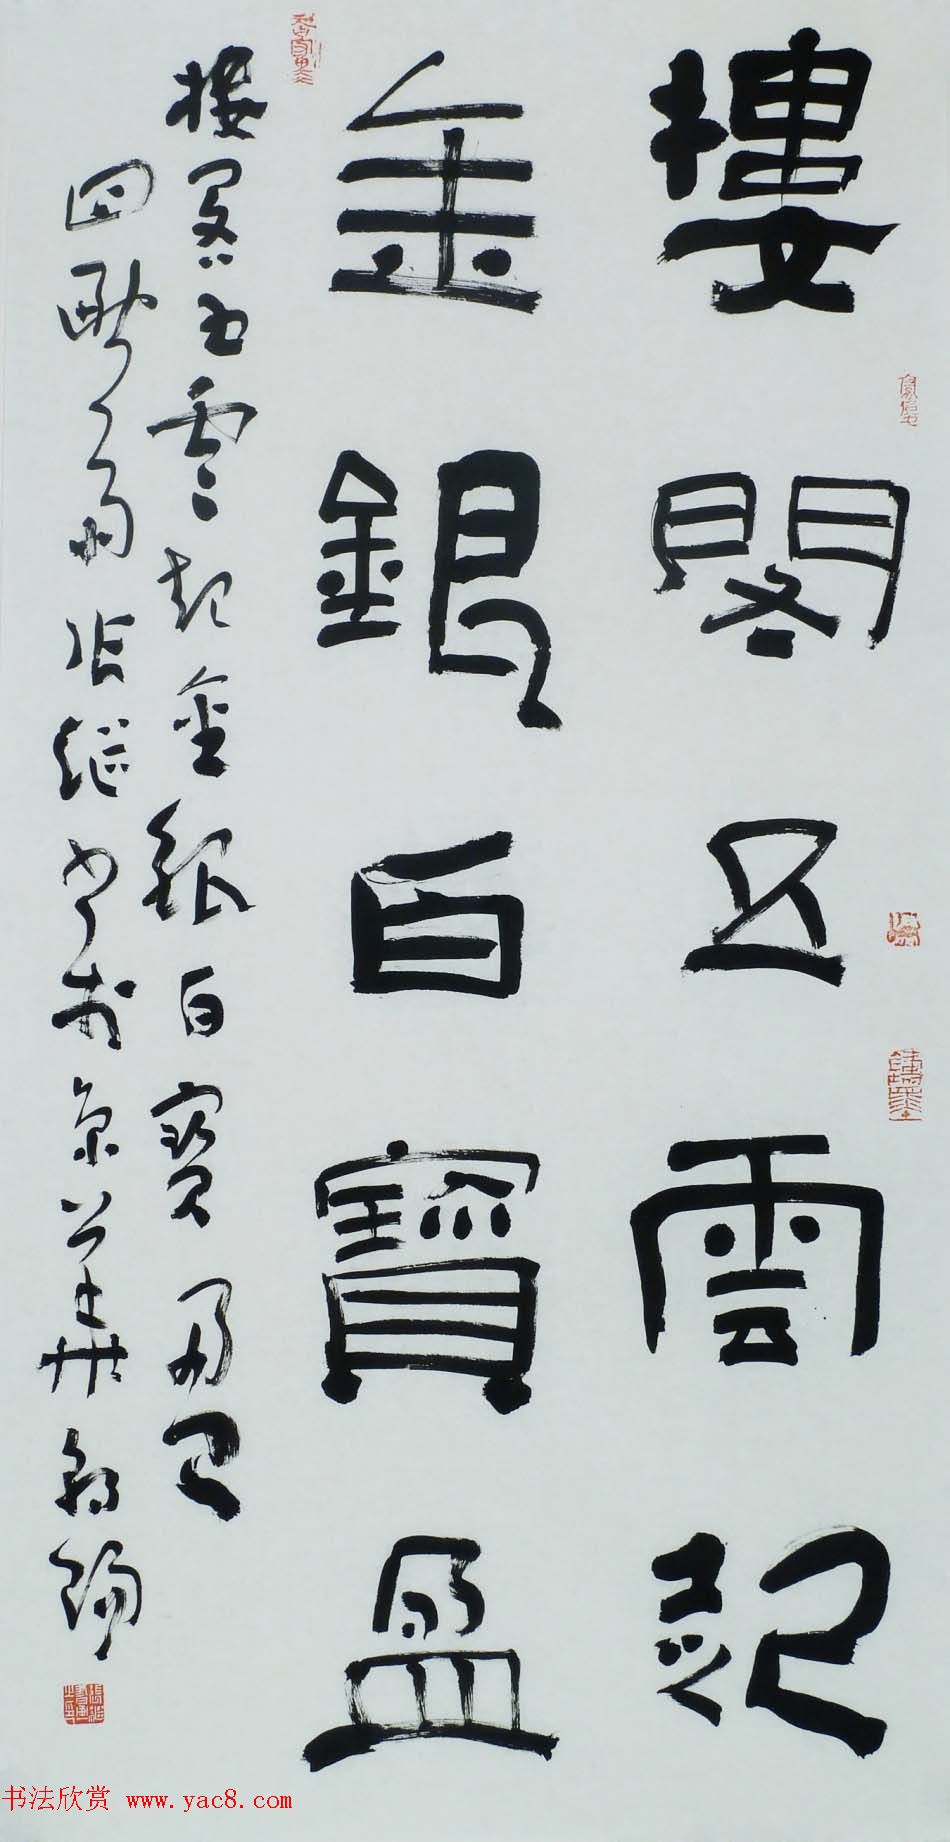 樓閣五雲起
金銀百寶盈
樓閣五雲起金銀百寶盈
張繼書於京華
书法欣赏 www.yac8.com